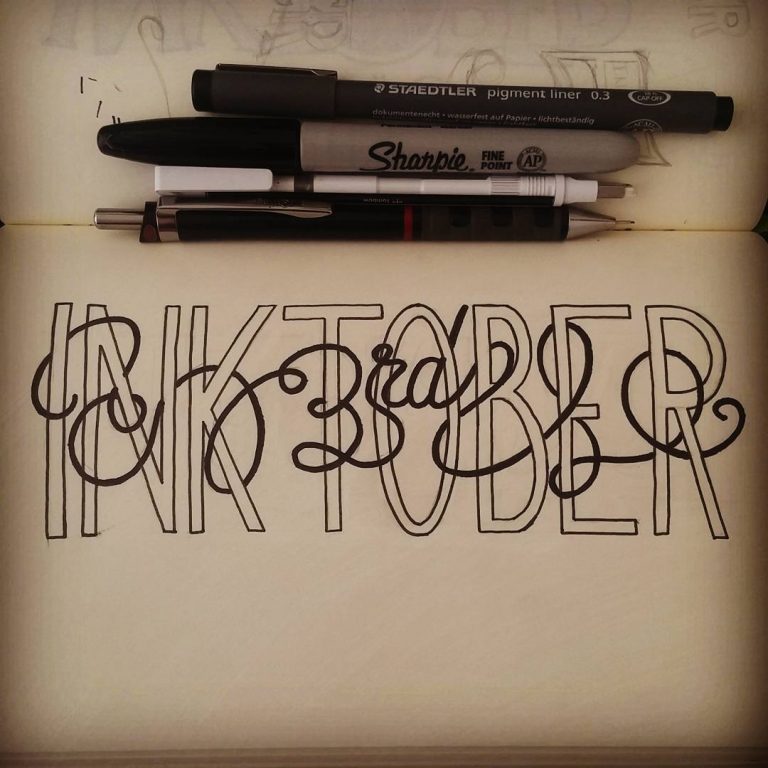 STAEDTLER pigment liner 0.3 CAP-OFF
dokumentenecht • wasserfest auf Papier • lichtbeständig
Sharpie. FINE POINT AP
INKTOBER